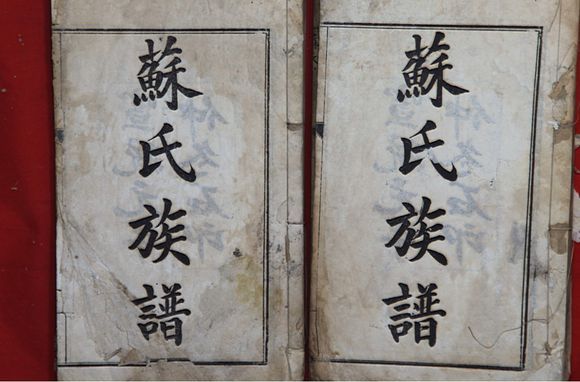 蘇氏族譜
蘇氏族譜